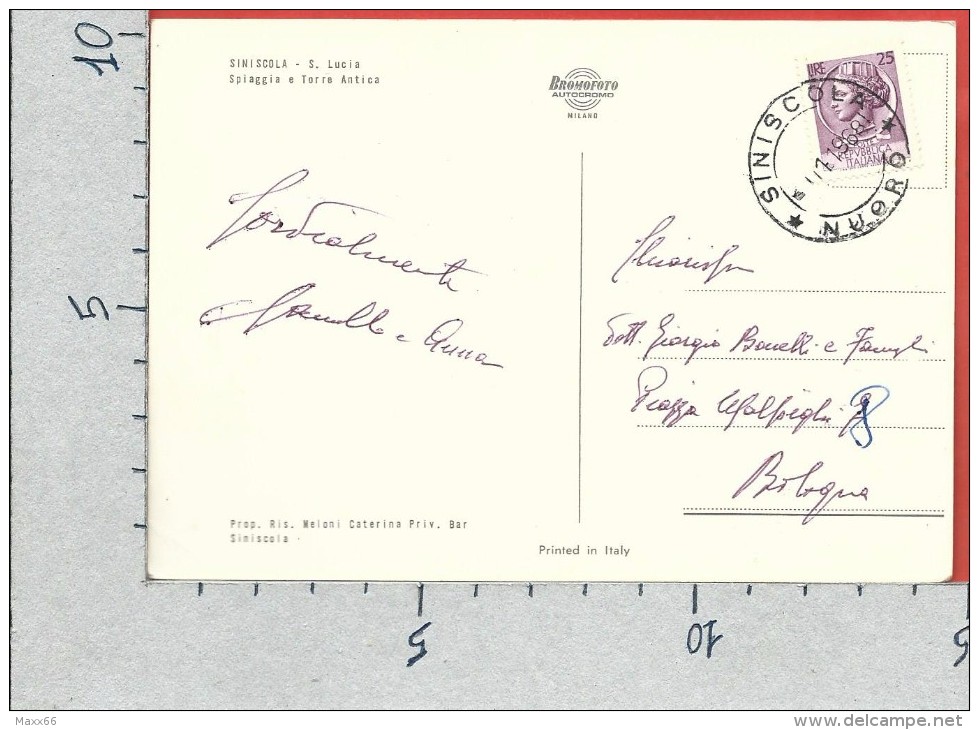 10
5
SINISCOLA - S. Lucia
Spiaggia e Torre Antica
BROMOFOTO
AUTOCROMO
MILANO
LIRE 25
REPVBBLICA
ITALIANA
SINISCOLA
1968
* NUORO *
Cordialmente
e Anna
Dott. Giorgio Bonelli e
Piazza Malpighi
8
Bologna
Prop. Ris. Meloni Caterina Priv. Bar
Siniscola
Printed in Italy
5
10
5
Maxx66
www.delcampe.net